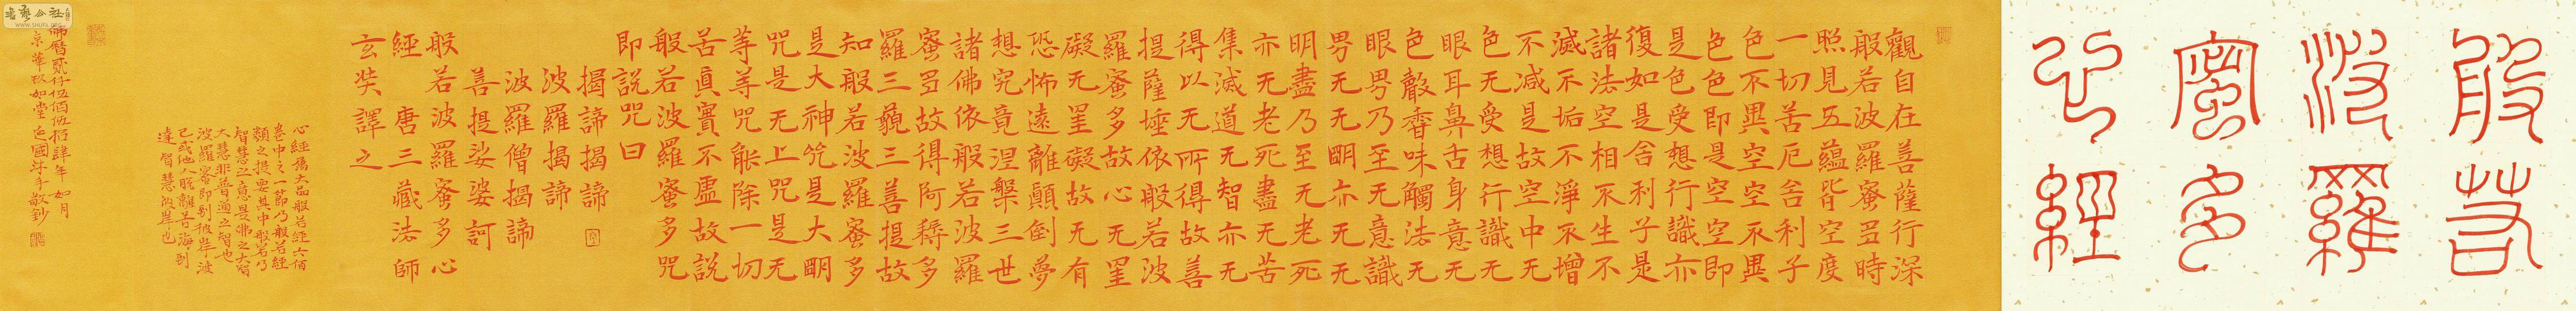 般若
波羅
蜜多
心經
觀自在菩薩行深
般若波羅蜜多時
照見五蘊皆空度
一切苦厄舍利子
色不異空空不異
色色即是空空即
是色受想行識亦
復如是舍利子是
諸法空相不生不
滅不垢不淨不增
不減是故空中无
色无受想行識无
眼耳鼻舌身意无
色聲香味觸法无
眼界乃至无意識
界无无明亦无无
明盡乃至无老死
亦无老死盡无苦
集滅道无智亦无
得以无所得故菩
提薩埵依般若波
羅蜜多故心无罣
礙无罣礙故无有
恐怖遠離顛倒夢
想究竟涅槃三世
諸佛依般若波羅
蜜多故得阿耨多
羅三藐三菩提故
知般若波羅蜜多
是大神咒是大明
咒是无上咒是无
等等咒能除一切
苦真實不虛故說
般若波羅蜜多咒
即說咒曰
揭諦揭諦
波羅揭諦
波羅僧揭諦
菩提娑婆訶
般若波羅蜜多心
經 唐三藏法師
玄奘譯之
心經爲大品般若經六佰
卷中之一節乃般若經
類之提要其中般若乃
智慧之意是佛之大智
大慧非普通之智也
波羅蜜即到彼岸波
己或他人脫離苦海到
達智慧彼岸也
佛曆貳仟伍佰伍拾肆年如月
京華玖如堂國沐手敬鈔
WWW.SHUFA.ORG